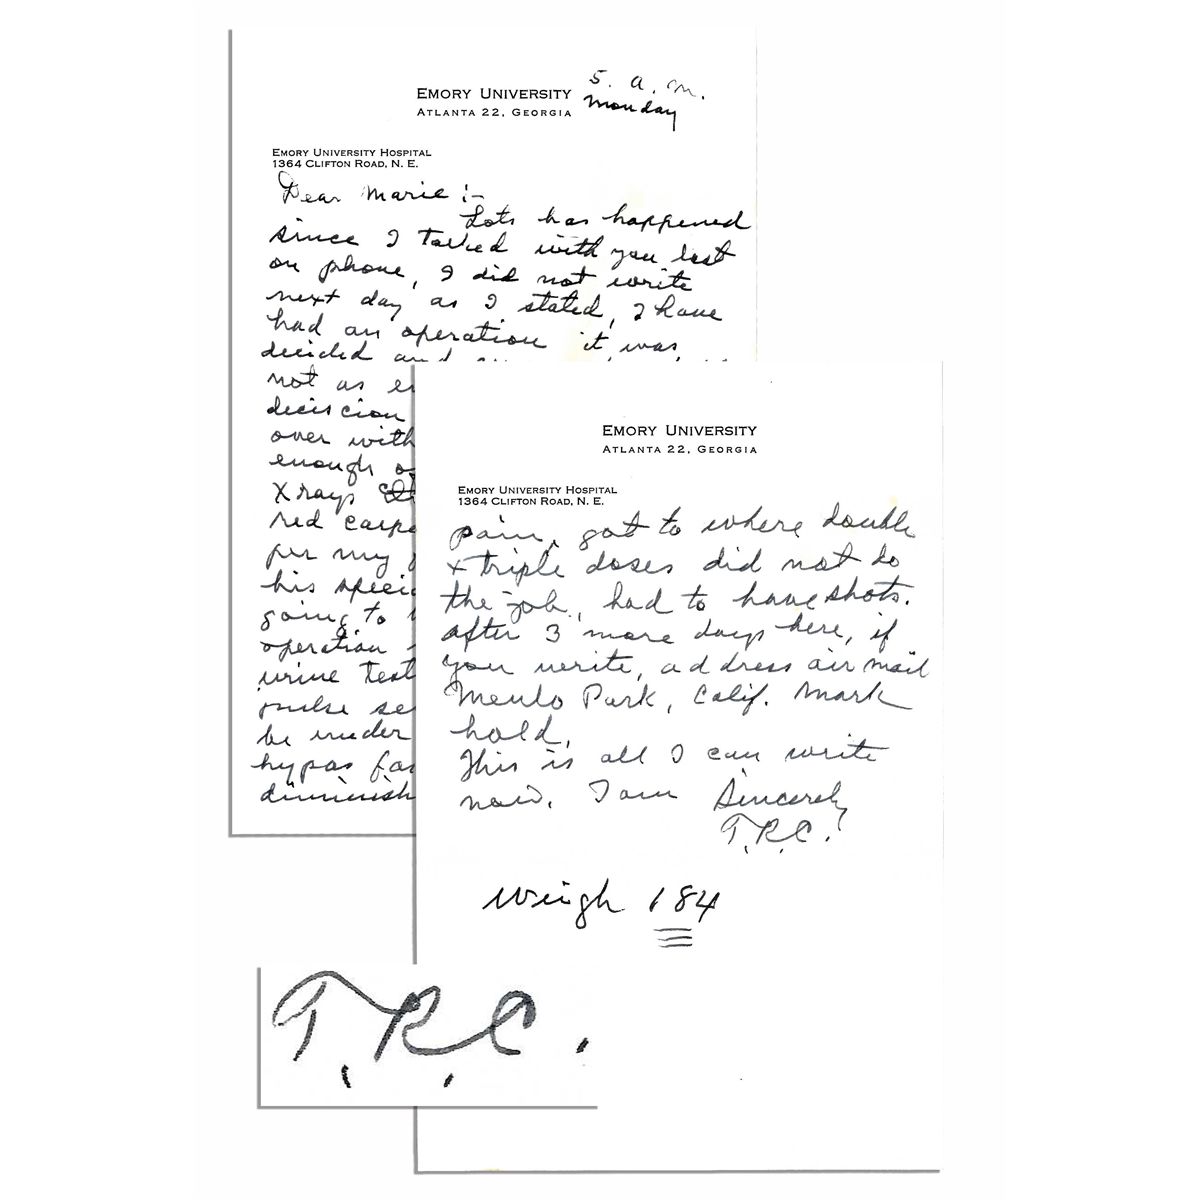 5. a.m.
EMORY UNIVERSITY
Monday
ATLANTA 22, GEORGIA
EMORY UNIVERSITY HOSPITAL
1364 CLIFTON ROAD, N. E.
Dear Marie :-
Lots has happened
since I talked with you last
on phone, I did not write
next day as I stated, I have
had an operation it was
decided and
not as
deciscion
over with
enough
X rays
red
per my
his
going to
operation
urine test
pulse
be under
hypos
diminish
EMORY UNIVERSITY
ATLANTA 22, GEORGIA
EMORY UNIVERSITY HOSPITAL
1364 CLIFTON ROAD, N. E.
pain, got to where double
+ triple doses did not do
the job, had to have shots.
after 3 more days here, if
you write, address air mail
Menlo Park, Calif. Mark
hold.
This is all I can write
now. I am Sincerely
T.R.C.
Weigh 184
T.R.C.